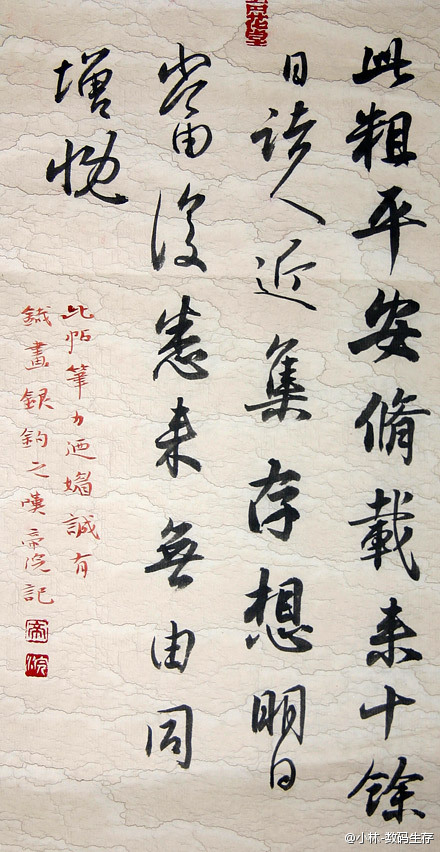 此粗平安脩載来十餘
日諸人近集存想明日
當復悉来無由同
增慨
此帖筆力遒媚誠有
鐵畫銀鈎之嘆帝記
@小林-数码生存